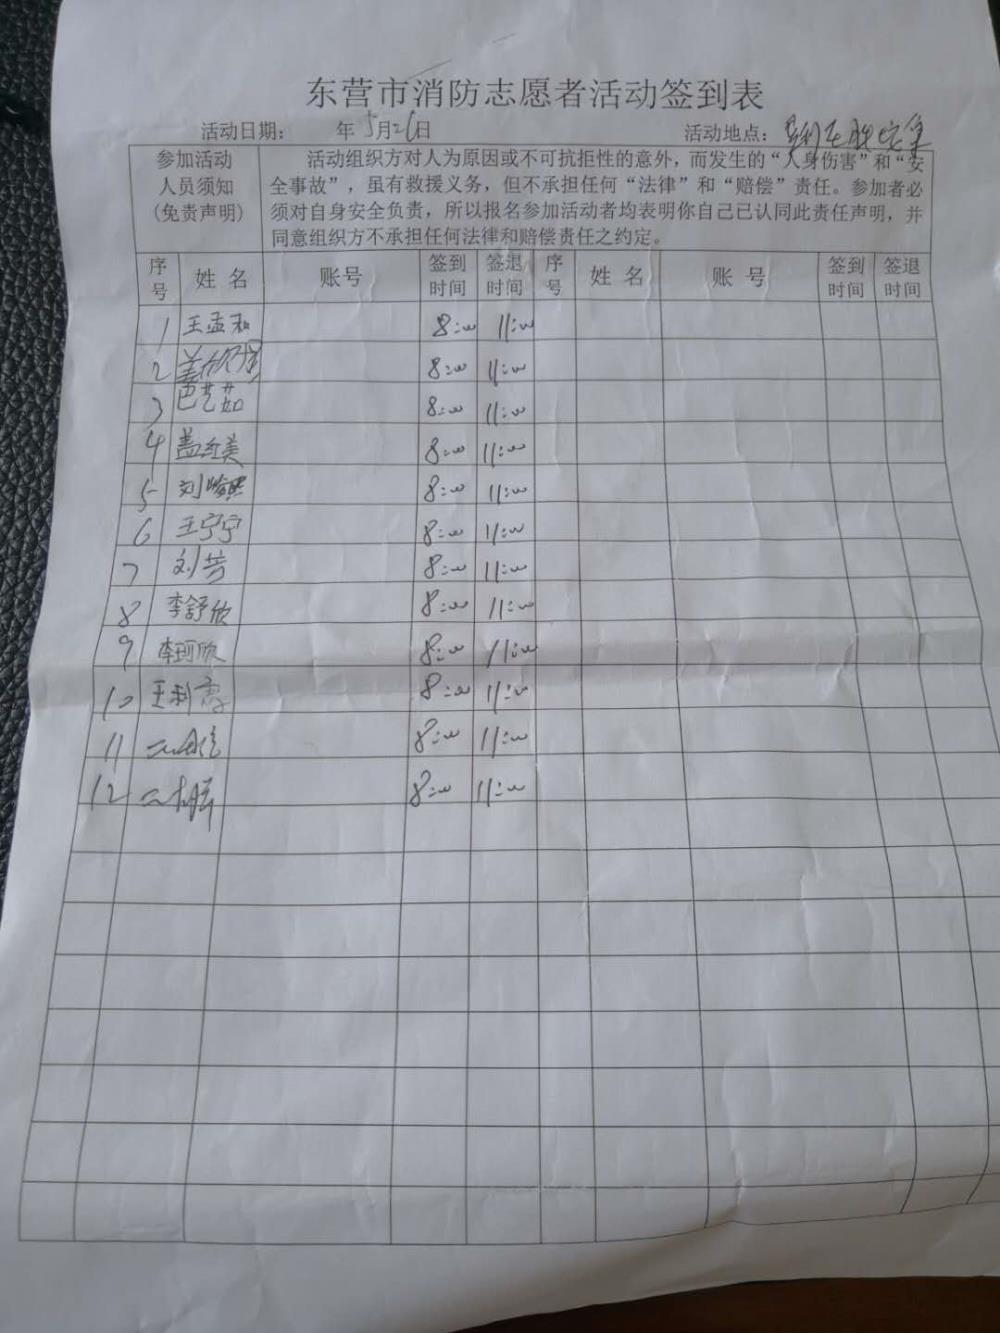 东营市消防志愿者活动签到表
活动日期： 年 5月26日 活动地点：
参加活动
人员须知
(免责声明)
活动组织方对人为原因或不可抗拒性的意外，而发生的“人身伤害”和“安
全事故”，虽有救援义务，但不承担任何“法律”和“赔偿”责任。参加者必
须对自身安全负责，所以报名参加活动者均表明你自己已认同此责任声明，并
同意组织方不承担任何法律和赔偿责任之约定。
序号 姓名 账号 签到时间 签退时间 序号 姓名 账号 签到时间 签退时间
1 王孟和 8:00 11:00
2 8:00 11:00
3 巴艺茹 8:00 11:00
4 盖红美 8:00 11:00
5 刘 8:00 11:00
6 王宁宁 8:00 11:00
7 刘芳 8:00 11:00
8 李舒欣 8:00 11:00
9 李珂欣 8:00 11:00
10 王利 8:00 11:00
11 8:00 11:00
12 8:00 11:00